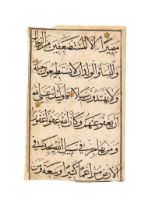 مصيرا الا المستضعفين من الرجال
والنساء والولدان لا يستطيعون حيلة
ولا يهتدون سبيلا فاولئك عسى الله
ان يعفو عنهم وكان الله عفوا غفورا
ومن يهاجر في سبيل الله يجد في
الارض مراغما كثيرا وسعة ومن